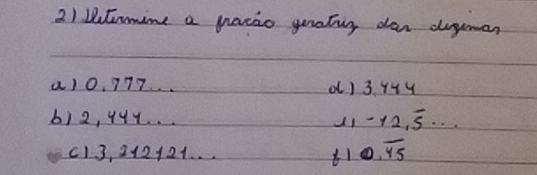 2) Determine a fração geratriz das dizimas
a) 0,777...
d) 3,444
b) 2,444...
e) -12,5̄...
c) 3,212121...
f) 0,4̅5̅